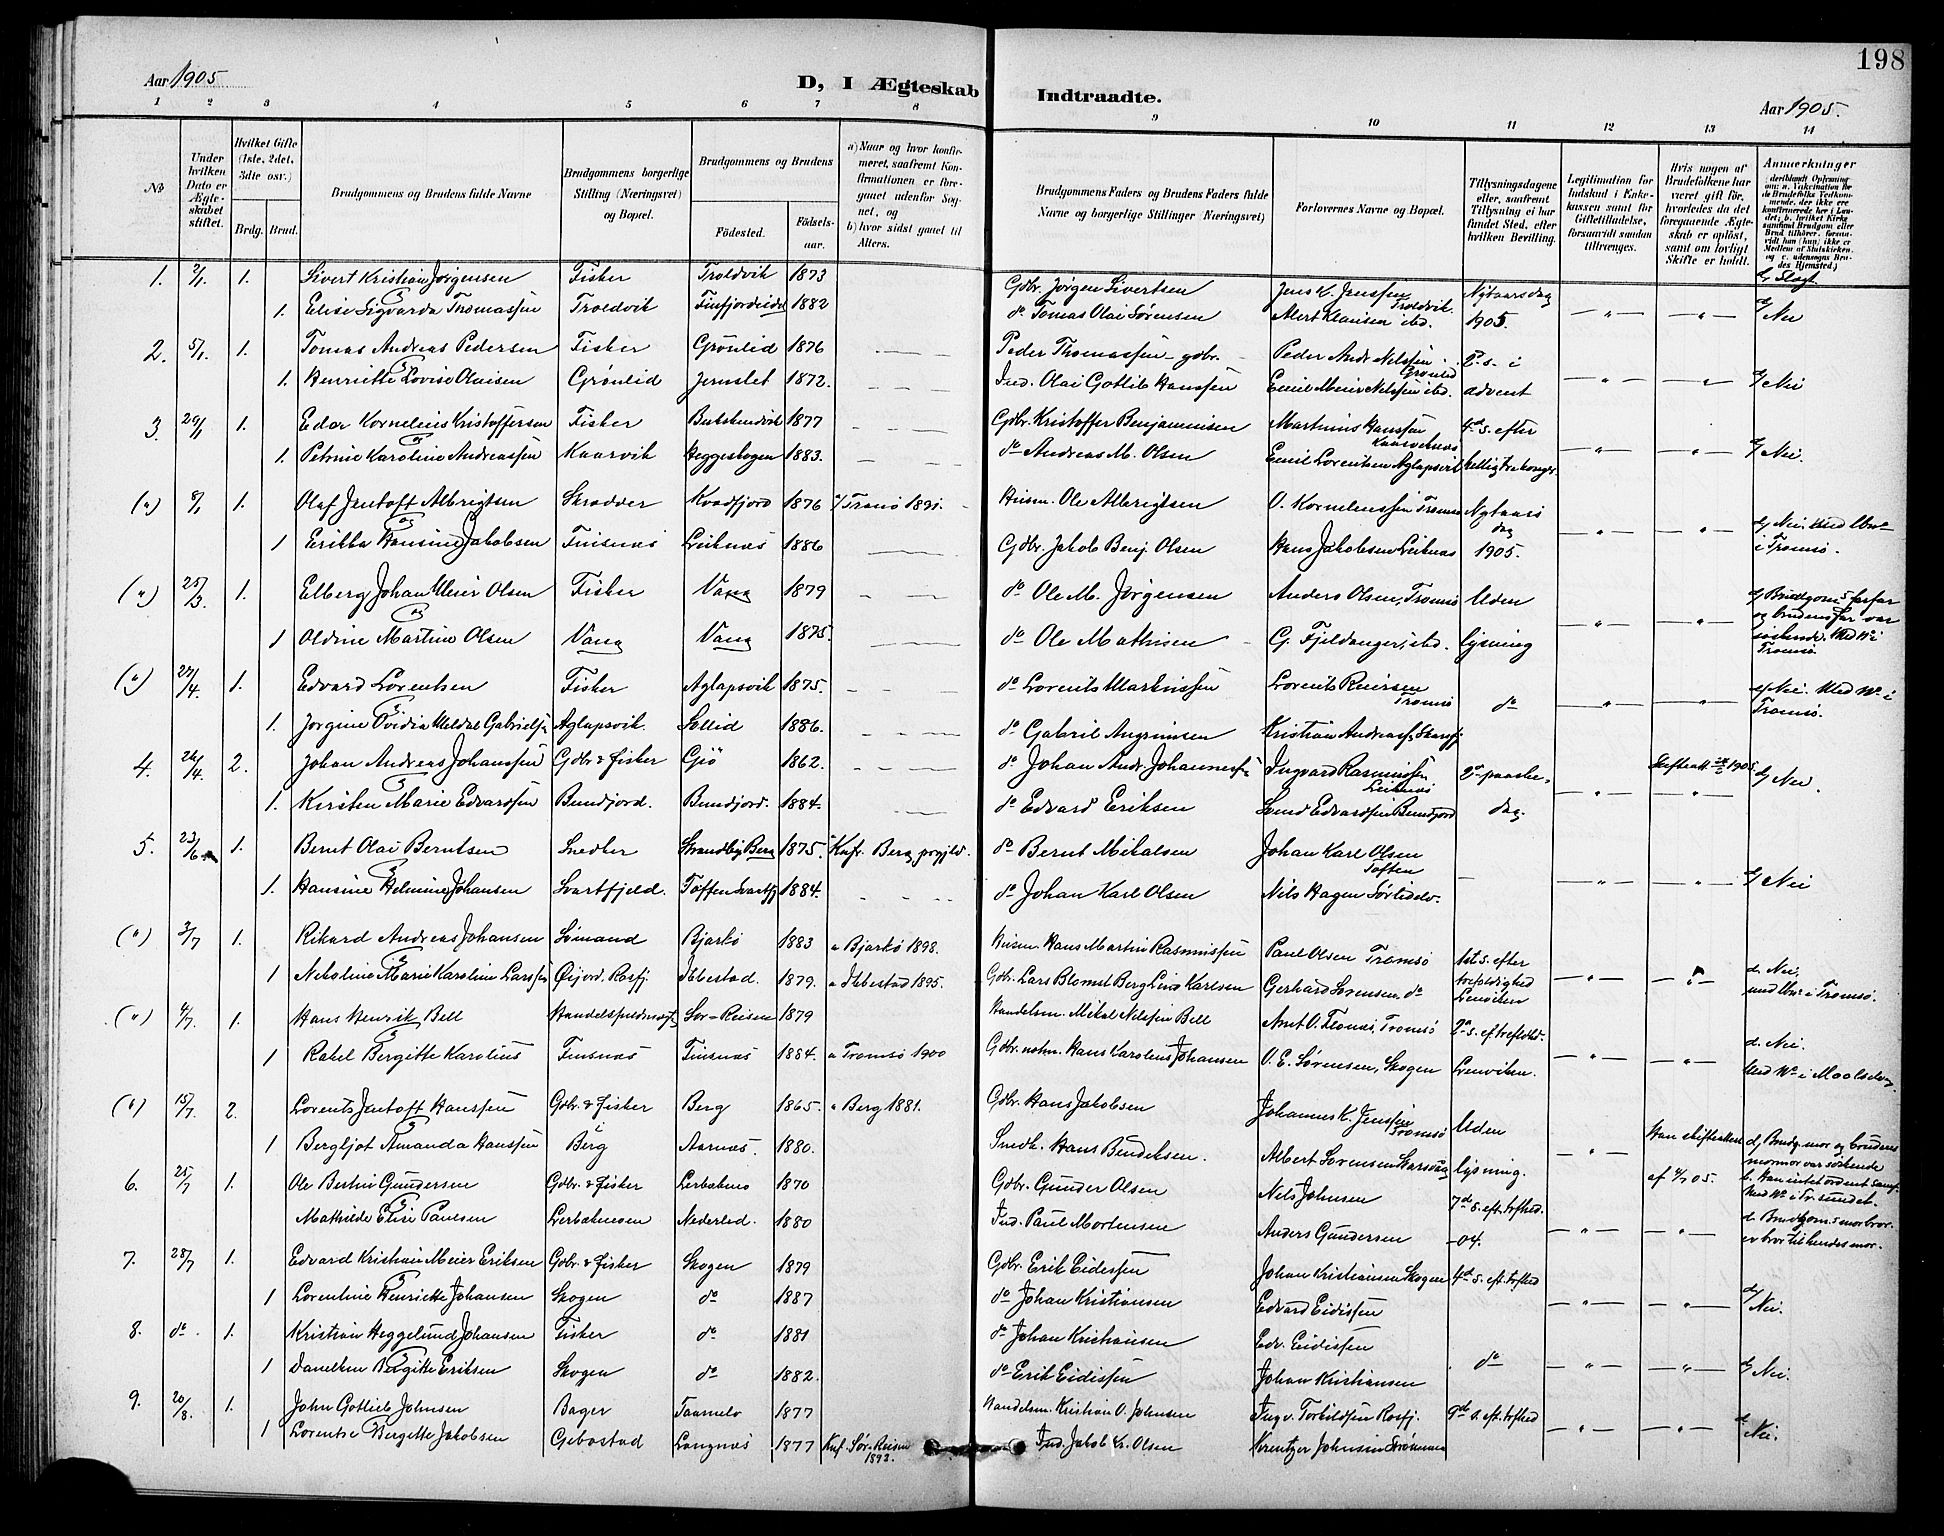 198
Aar 1905
D, I Ægteskab Indtraadte.
Aar 1905.
1 2 3 4 5 6 7 8 9 10 11 12 13 14
No
Under hvilken Dato er Ægteskabet stiftet.
Hvilket Gifte (1ste, 2det, 3dte osv.)
Brdg. Brud.
Brudgommens og Brudens fulde Navne
Brudgommens borgerlige Stilling (Næringsvei) og Bopæl.
Brudgommens og Brudens
Fødested.
Fødselsaar.
a) Naar og hvor konfirmeret, saafremt Konfirmationen er foregaaet udenfor Sognet, og
b) hvor sidst gaaet til Alters.
Brudgommens Faders og Brudens Faders fulde Navne og borgerlige Stillinger (Næringsvei)
Forlovernes Navne og Bopæl.
Tillysningsdagene eller, saafremt Tillysning ei har fundet Sted, efter hvilken Bevilling.
Legitimation for Indskud i Enkekassen samt for Giftetilladelse, forsaavidt saadan tiltrænges.
Hvis nogen af Brudefolkene har været gift før, hvorledes da det foregaaende Ægteskab er opløst, samt om lovligt Skifte er holdt.
Anmærkninger
d/ Slegt.
1. 2/1 1. Sivert Kristian Jørgensen Fisker Troldvik 1873 Gdbr. Jørgen Sivertsen Jens K. Jenssen Troldvik Nytaarsdag
1. Elise Sigvarda Thomassen Troldvik Finfjordeidet 1882 do Tomas Olai Sørensen Alert Klausen ibd. 1905. d/ Nei
2. 5/1 1. Tomas Andreas Pedersen Fisker Grønlid 1876 Peder Thomassen - gdbr. Peder Andr. Nilssen Grønlid 2. s. i
1. Henriette Lovise Olaisen Grønlid 1872. Ind. Olai Gotlib Hanssen Emil Meier Nilssen ibd. advent d/ Nei
3. 20/1 1. Edor Kornelius Kristoffersen Fisker 1877 Gdbr. Kristoffer Benjaminsen Martinus Hanssen 4de s. efter
1. Petrine Karoline Andreassen Kaarvik Heggeskogen 1883. do Andreas M. Olsen Emil Lorentsen Aglapsvik helligtrekonger d/ Nei.
(") 8/1 1. Olaf Jentoft Albrigtsen Skrædder Kvædfjord 1876 a/ Tromsø 1891. Husm. Ole Albrigtsen O. Korneliussen Tromsø Nytaarsdag
1 Erikka Hansine Jakobsen Finsnæs Leiknæs 1886 Gdbr. Jakob Benj. Olsen Hans Jakobsen Leiknæs 1905. d/ Nei. i Tromsø.
(") 25/3. 1. Elberg Johan Meier Olsen Fisker Vang 1879 do Ole M. Jørgensen Anders Olsen, Tromsø Uden
1 Oldine Martine Olsen Vang Vang 1875. do Ole Mathisen G. Fjeldanger, ibd. lysning d/ Brudgoms farfar og brudens far var søskende. Tromsø
(") 27/4. 1. Edvard Lorentsen Fisker Aglapsvik 1875. do Lorents Martinussen Lorents Reiersen Tromsø do
1. Jørgine Ovidia Meldal Gabrielsen Aglapsvik. Sollid 1886. do Gabriel Angrimsen Kristian Andreass. d/ Nei. Tromsø.
4. 26/4. 2. Johan Andreas Johanssen Gdbr. & Fisker Gjø 1862. do Johan Andr. Johannessen Ingvard Rasmussen Leiknæs 2. paaske- 1905
1. Kirsten Marie Edvardsen Bundjord. Bundjord. 1884. do Edvard Eriksen Edvardsen Bundjord dag. d/ Nei.
5. 23/6 1. Bernt Olai Berntsen Snedker Strandby Berg 1875. Knf. Berg prgjld. do Bernt Mikalsen Johan Karl Olsen Toften
1. Hansine Helmine Johansen Svartfjeld. Toften Svartfj 1884. do Johan Karl Olsen Nils Hagen d/ Nei
(") 2/7 1. Rikard Andreas Johansen Sømand Bjarkø 1883 " Bjarkø 1898. Husm. Hans Martin Rasmussen Paul Olsen Tromsø 1st s. efter
1 Nekoline Marie Karoline Larssen Øijord. Rosfj. Ibbestad. 1879. " Ibbestad 1895. Gdbr. Lars Blomst Berg Lind Karlsen Gerhard Sørensen do trefoldighed Lenviken d. Nei. i Tromsø.
(") 4/7. 1. Hans Henrik Bell Sør-Reisen 1879 Handelsm. Mikal Nilssen Bell Arnt O. Flønes, Tromsø 2. s. ef. trefoldhd.
1 Rakel Bergitte Karolius Finsnæs Finsnæs 1884. " Tromsø 1900 Gdbr. Hans Karolius Johansen O. E. Sørensen, Skogen Lenviken. d. Nei. i Maalselv
(") 15/7. 2. Lorents Jentoft Hanssen Gdbr. & Fisker Berg 1865. " Berg 1881. Gdbr. Hans Jakobsen Johannes K. Jenssen Tromsø Uden
1 Bergljot Amanda Hanssen Berg Aarnæs. 1880. Smedk. Hans Bendiksen. Albert Sørensen lysning. af 4/7 05. d/ Brudg. mor og brudens mormor var søskende
6. 25/7 1. Ole Bertin Gundersen Gdbr. & Fisker 1870 Gdbr. Gunder Olsen Nils Johnsen 7de s. eft. trfhed.
Mathilde Elise Paulsen 1880 Ind. Paul Mortensen Anders Gundersen -04. d. Brudgoms morbror er bror til hendes mor.
7. 28/7 1. Edvard Kristian Meier Eriksen Gdbr. & Fisker Skogen 1879 Gdbr. Erik Eidissen Johan Kristiansen Skogen 4de s. eft. trfhed
1 Lorentine Henriette Johansen Skogen do 1887 do Johan Kristiansen Edvard Eidissen d/ Nei.
8. do 1. Kristian Heggelund Johansen Fisker do 1881 do Johan Kristiansen Edv. Eidissen
1 Danelken Bergitte Eriksen Skogen do 1882. do Erik Eidissen Johan Kristiansen do d/ Nei.
9. 20/8. 1. John Gotlieb Johnsen Bager Taamelv 1877 Handelsm. Kristian O. Johnsen Ingv. Torkildsen Rosfj. 9de s. eft. trfhed
1 Lorentse Bergitte Jakobsen Gibostad Langnæs 1877 Knf. Sør-Reisen 1892. Ind. Jakob Kr. Olsen Kreutzer Johnsen d. Nei.